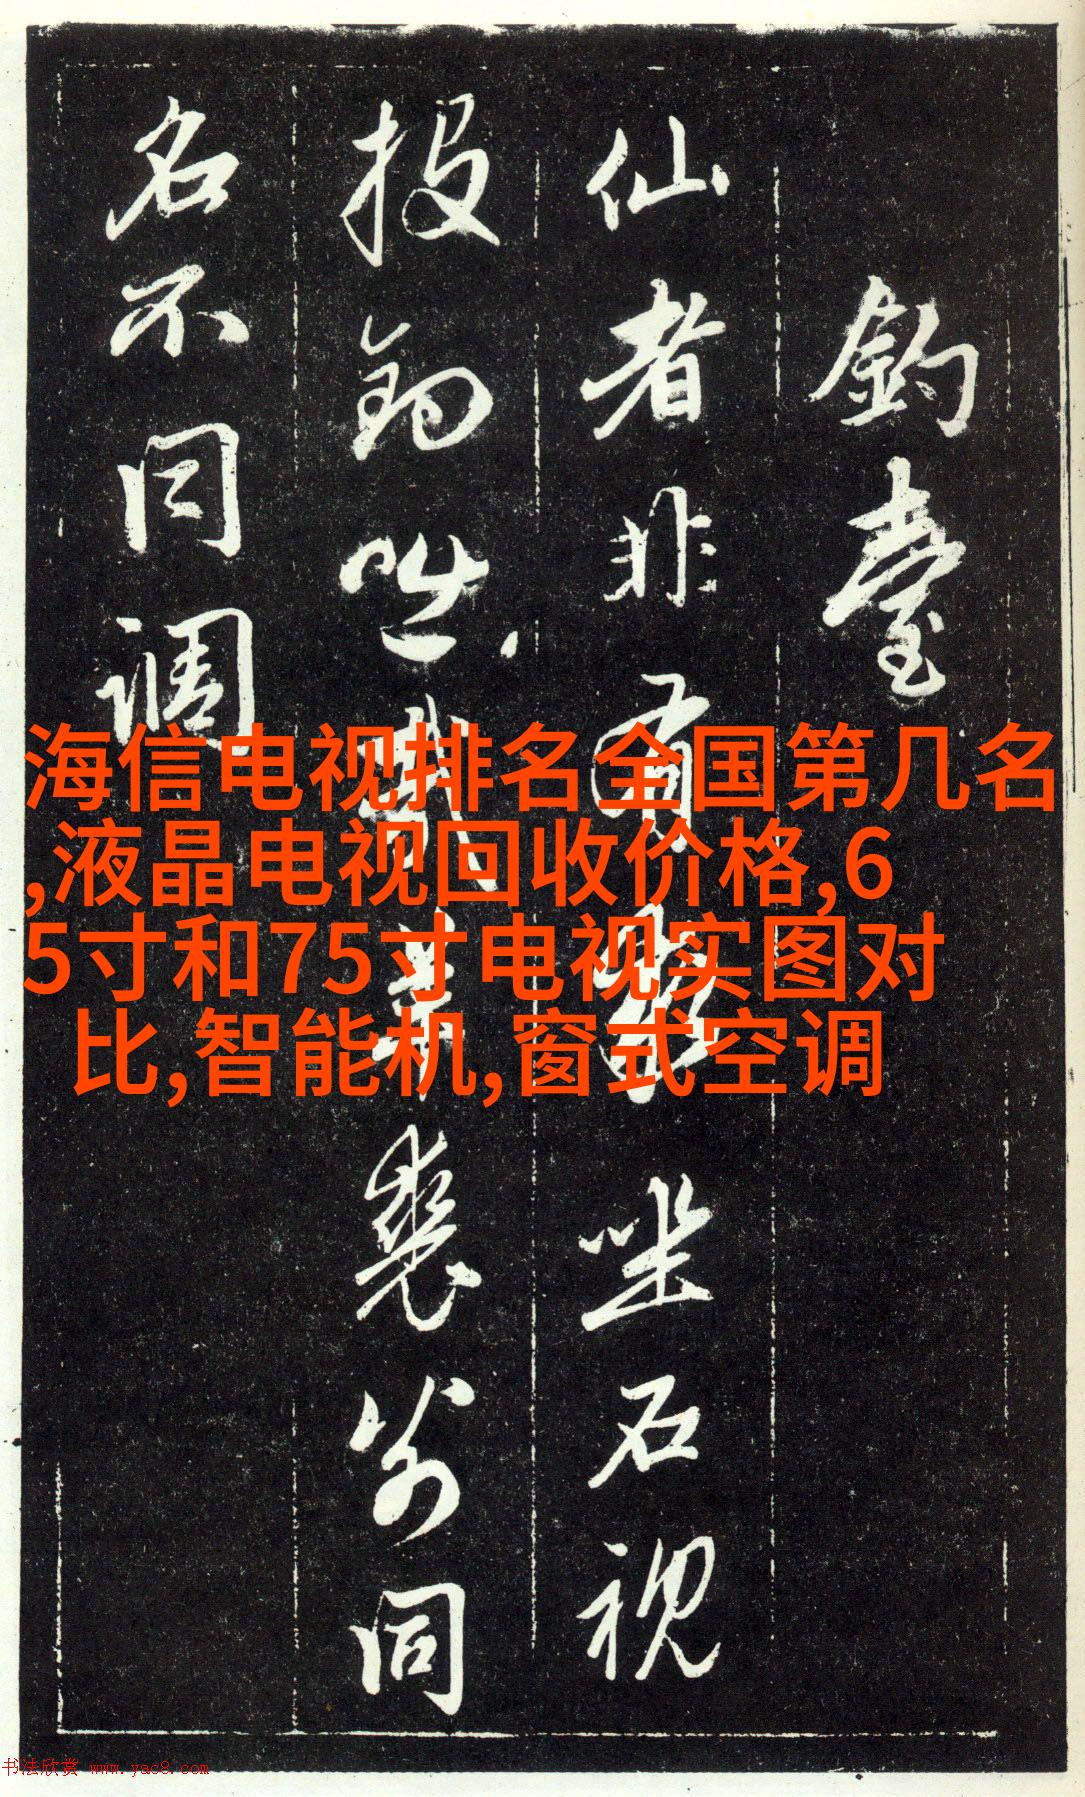 釣臺
仙者非有坐石視
投釣咄哉羊裘同
名不同調
海信电视排名全国第几名
,液晶电视回收价格,6
5寸和75寸电视实图对
比,智能机,窗式空调
书法欣赏 www.yac8.com